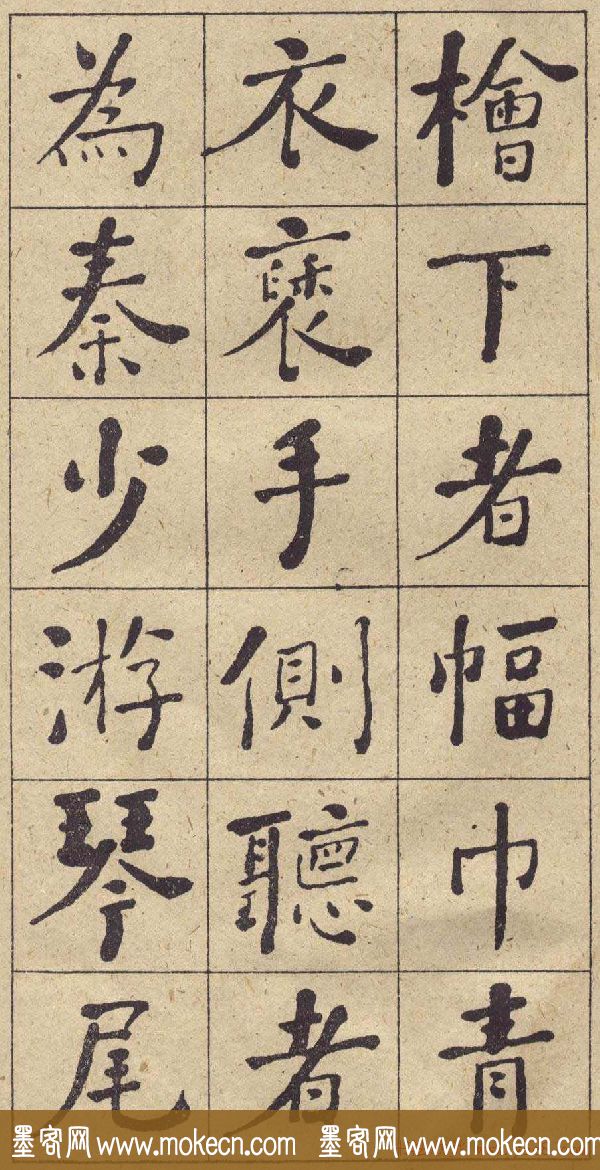 檜下者幅巾青
衣褎手側聽者
為秦少游琴尾
墨客网 www.mokecn.com 墨客网 www.mokecn.com